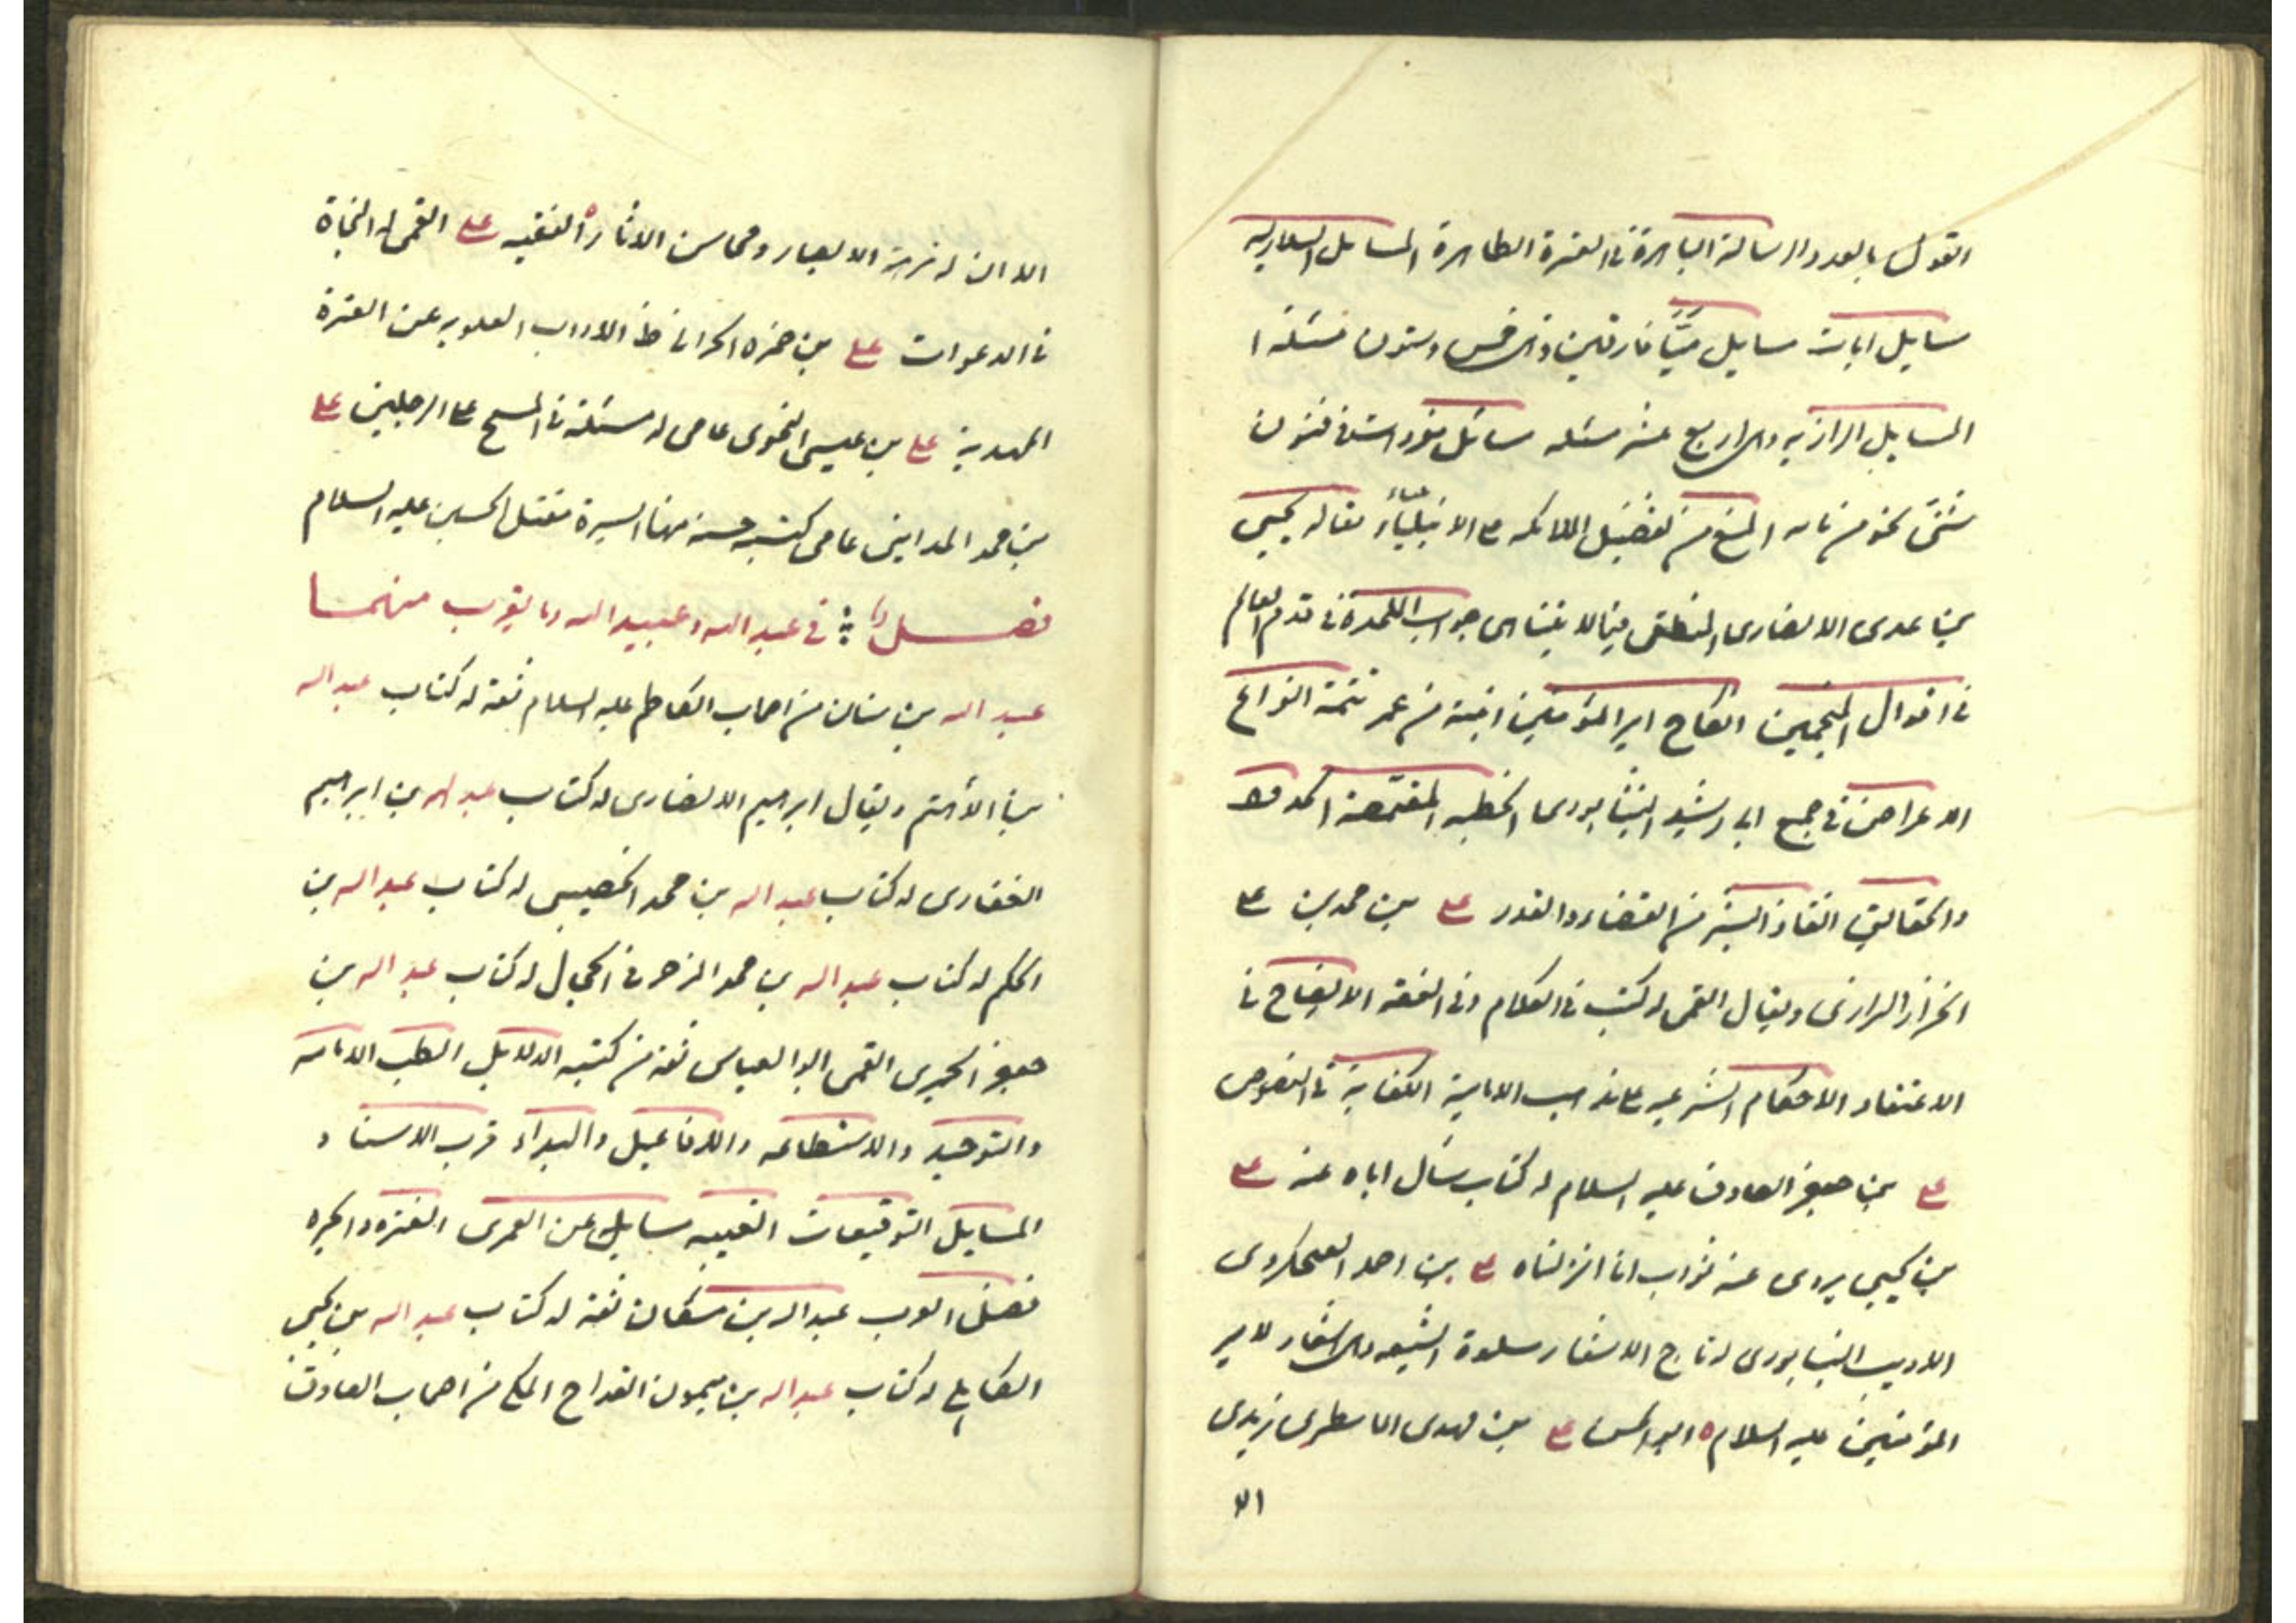 القول بالعدد الرسالة الباهرة فى العترة الطاهرة المسائل السلاريه
مسايل ايات مسايل ميّافارقين وهى خمس وستون مسئلة ا
المسايل الرازيه وهى اربع عشر مسئله مسائل مفردات فى فنون
شتىّ نحو من مائه المنع من تفضيل الملائكه ع الانبياء مقاله يحيى
بن عدى الانصارى المنطقى فيما لا يتناهى جواب الملحدة فى قدم العالم
فى اقوال المنجمين انكاح امير المؤمنين ابنته من عمر تتمة انواع
الاعراض فى جمع ابى رشيد النيشابورى الخطبه المقمصة الحدود
والحقايق انقاذ البشر من القضاء والقدر على بن محمد بن على
الخزاز الرازى ويقال القمى له كتب فى الكلام وفى الفقه الايضاح فى
الاعتقاد الاحكام الشرعيه على مذهب الامامية الكفاية فى النصوص
على بن جعفر الصادق عليه السلام له كتاب سأل اباه عنه على
بن يحيى يروى عنه ثواب انا انزلناه على بن احمد الفنجكردى
الاديب النيسابورى له تاج الاشعار سلوة الشيعه وهى اشعار لامير
المؤمنين عليه السلام ه ابو الحسن على بن مهدى المامطيرى زيدى
الا
الا ان له نزهة الابصار ومحاسن الاثار ه الفقيه على القمى له النجاة
فى الدعوات على بن حمزه الحرانى ظ الاداب العلويه عن العترة
المهدية على بن عيسى النحوى عامى له مسئلة فى المسح على الرجلين على
بن محمد المداينى عامى كتبه حسنه منها السيرة مقتل الحسين عليه السلام
فصل فى عبد الله وعبيد الله وما يقرب منهما
عبد الله بن سنان من اصحاب الكاظم عليه السلام ثقة له كتاب عبد الله
بن الاهتم ويقال ابرهيم الانصارى له كتاب عبد الله بن ابرهيم
الغفارى له كتاب عبد الله بن محمد الحصينى له كتاب عبد الله بن
الحكم له كتاب عبد الله بن محمد المزخرف الحجال له كتاب عبد الله بن
جعفر الحميرى القمى ابو العباس ثقة من كتبه الدلايل الطب الامامه
والتوحيد والاستطاعه والافاعيل والبداء قرب الاسناد
المسايل التوقيعات الغيبه مسايل عن العمرى الفتره والحيره
فضل العرب عبد الله بن مسكان ثقة له كتاب عبد الله بن يحيى
الكاهلى له كتاب عبد الله بن ميمون القداح المكى من اصحاب الصادق